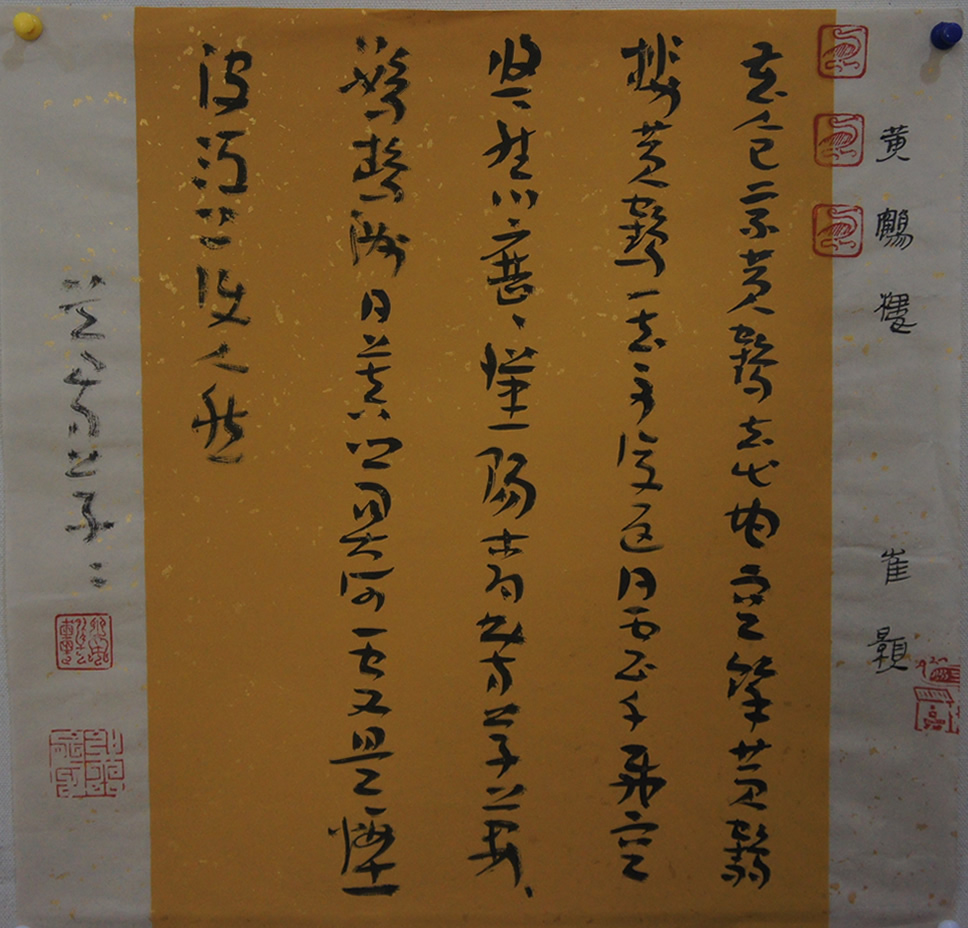 黄鶴樓 崔顥
昔人已乘黄鶴去此地空餘黄鶴
樓黄鶴一去不復返白雲千載空
悠々晴川歷々漢陽樹芳草萋々
鸚鵡洲日暮鄉關何處是煙
波江上使人愁